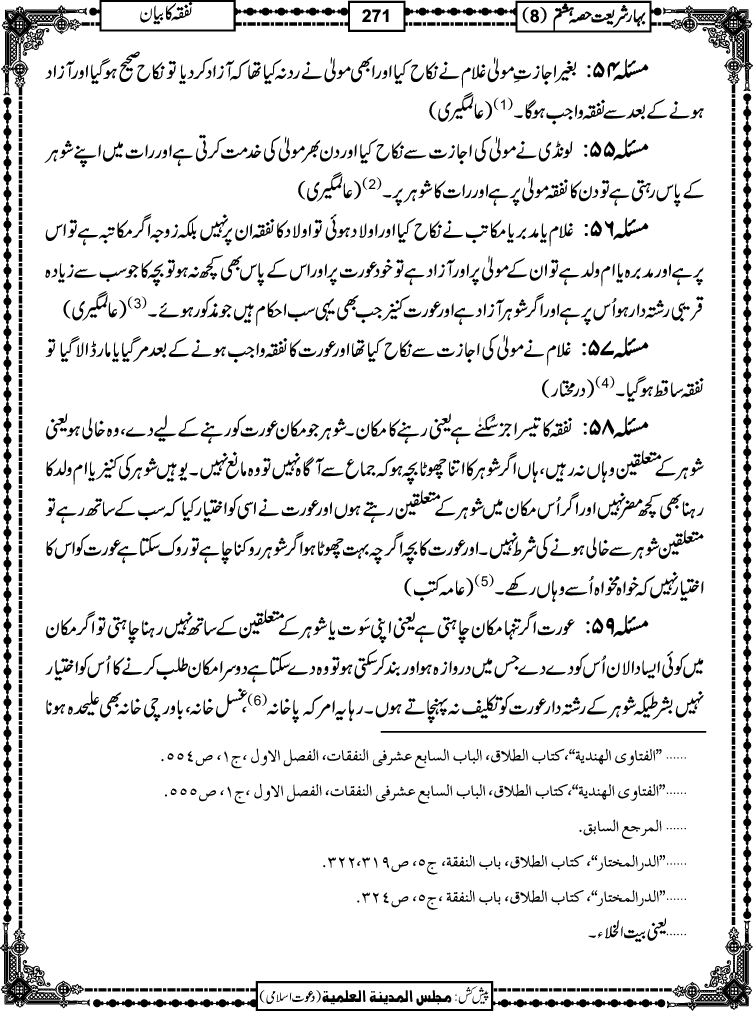 بہارِ شریعت حصہ ہشتم (8)
271
نفقہ کا بیان
مسئلہ ۵۴: بغیر اجازتِ مولیٰ غلام نے نکاح کیا اور ابھی مولیٰ نے رد نہ کیا تھا کہ آزاد کردیا تو نکاح صحیح ہوگیا اور آزاد
ہونے کے بعد سے نفقہ واجب ہوگا۔(1) (عالمگیری)
مسئلہ ۵۵: لونڈی نے مولیٰ کی اجازت سے نکاح کیا اور دن بھر مولیٰ کی خدمت کرتی ہے اور رات میں اپنے شوہر
کے پاس رہتی ہے تو دن کا نفقہ مولیٰ پر ہے اور رات کا شوہر پر۔(2) (عالمگیری)
مسئلہ ۵۶: غلام یا مدبر یا مکاتب نے نکاح کیا اور اولاد ہوئی تو اولاد کا نفقہ ان پر نہیں بلکہ زوجہ اگر مکاتبہ ہے تو اس
پر ہے اور مدبرہ یا ام ولد ہے تو ان کے مولیٰ پر اور آزاد ہے تو خود عورت پر اور اس کے پاس بھی کچھ نہ ہو تو بچہ کا جو سب سے زیادہ
قریبی رشتہ دار ہو اُس پر ہے اور اگر شوہر آزاد ہے اور عورت کنیز جب بھی یہی سب احکام ہیں جو مذکور ہوئے۔(3) (عالمگیری)
مسئلہ ۵۷: غلام نے مولیٰ کی اجازت سے نکاح کیا تھا اور عورت کا نفقہ واجب ہونے کے بعد مرگیا یا مار ڈالا گیا تو
نفقہ ساقط ہوگیا۔(4) (درمختار)
مسئلہ ۵۸: نفقہ کا تیسرا جز سُکنٰے ہے یعنی رہنے کا مکان۔ شوہر جو مکان عورت کو رہنے کے لیے دے، وہ خالی ہو یعنی
شوہر کے متعلقین وہاں نہ رہیں، ہاں اگر شوہر کا اتنا چھوٹا بچہ ہو کہ جماع سے آگاہ نہیں تو وہ مانع نہیں۔ یوہیں شوہر کی کنیز یا ام ولد کا
رہنا بھی کچھ مضر نہیں اور اگر اُس مکان میں شوہر کے متعلقین رہتے ہوں اور عورت نے اسی کو اختیار کیا کہ سب کے ساتھ رہے تو
متعلقین شوہر سے خالی ہونے کی شرط نہیں۔ اور عورت کا بچہ اگرچہ بہت چھوٹا ہو اگر شوہر روکنا چاہے تو روک سکتا ہے عورت کو اس کا
اختیار نہیں کہ خواہ مخواہ اُسے وہاں رکھے۔(5) (عامہ کتب)
مسئلہ ۵۹: عورت اگر تنہا مکان چاہتی ہے یعنی اپنی سَوت یا شوہر کے متعلقین کے ساتھ نہیں رہنا چاہتی تو اگر مکان
میں کوئی ایسا دالان اُس کو دے دے جس میں دروازہ ہو اور بند کرسکتی ہو تو وہ دے سکتا ہے دوسرا مکان طلب کرنے کا اُس کو اختیار
نہیں بشرطیکہ شوہر کے رشتہ دار عورت کو تکلیف نہ پہنچاتے ہوں۔ رہا یہ امر کہ پاخانہ(6)، غسل خانہ، باورچی خانہ بھی علیحدہ ہونا
...... ”الفتاوى الهندية“، كتاب الطلاق، الباب السابع عشر فى النفقات، الفصل الاول ،ج١، ص٥٥٤.
...... ”الفتاوى الهندية“، كتاب الطلاق، الباب السابع عشر فى النفقات، الفصل الاول ،ج١، ص٥٥٥.
...... المرجع السابق.
...... ”الدر المختار“، كتاب الطلاق، باب النفقة، ج٥، ص٣٢٢،٣١٩.
...... ”الدر المختار“، كتاب الطلاق، باب النفقة ،ج٥، ص٣٢٤.
...... یعنی بیت الخلاء۔
پیش کش: مجلس المدینۃ العلمیۃ (دعوت اسلامی)